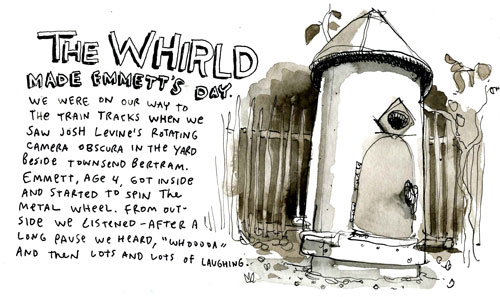 THE WHIRLD
MADE EMMETT'S DAY.
WE WERE ON OUR WAY TO
THE TRAIN TRACKS WHEN WE
SAW JOSH LEVINE'S ROTATING
CAMERA OBSCURA IN THE YARD
BESIDE TOWNSEND BERTRAM.
EMMETT, AGE 4, GOT INSIDE
AND STARTED TO SPIN THE
METAL WHEEL. FROM OUT-
SIDE WE LISTENED - AFTER A
LONG PAUSE WE HEARD, "WHOOOOA"
AND THEN LOTS AND LOTS OF LAUGHING.